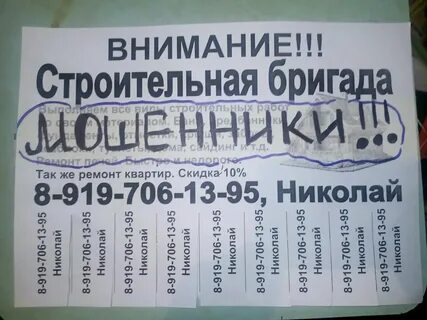 ВНИМАНИЕ!!!
Строительная бригада
Выполняем все виды строительных работ
МОШЕННИКИ!!!
сайдинг и т.д.
Ремонт печей. Быстро и недорого.
Так же ремонт квартир. Скидка 10%
8-919-706-13-95, Николай
8-919-706-13-95
Николай
8-919-706-13-95
Николай
8-919-706-13-95
Николай
8-919-706-13-95
Николай
8-919-706-13-95
Николай
8-919-706-13-95
Николай
8-919-706-13-95
Николай
8-919-706-13-95
Николай
8-919-706-13-95
Николай